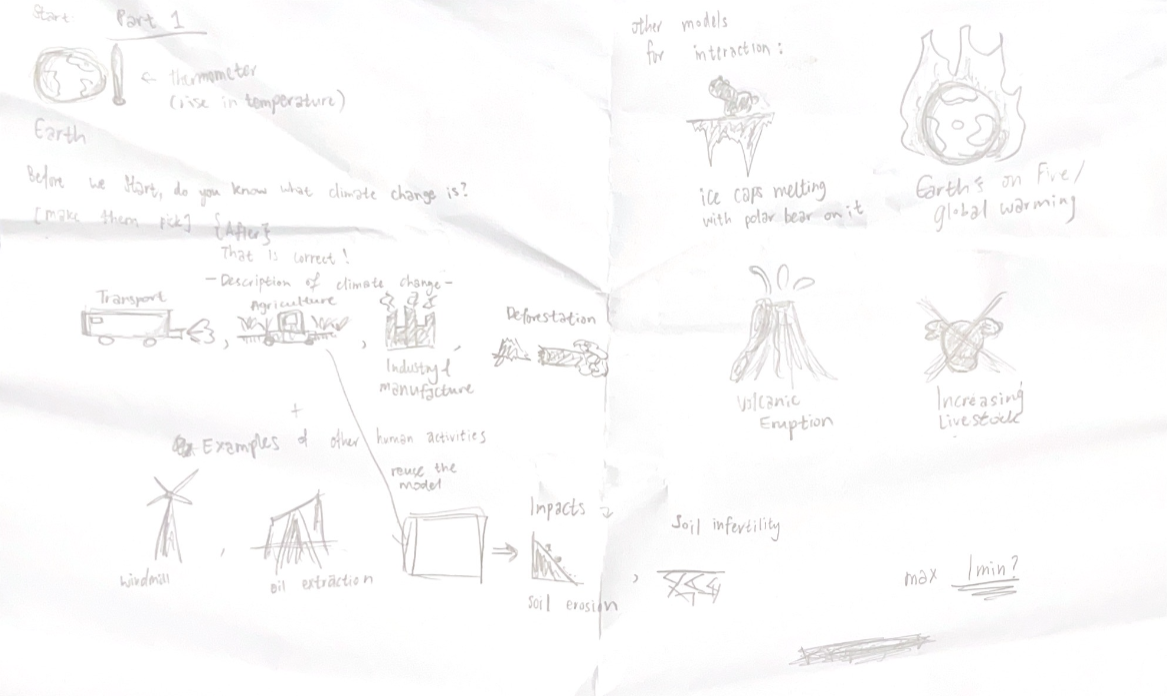 Start:
Part 1
← thermometer
(rise in temperature)
Earth
Before we start, do you know what climate change is?
[make them pick] {After}
That is correct!
- Description of climate change -
Transport
Agriculture
Industry & manufacture
Deforestation
+
Examples of other human activities
reuse the
model
windmill
oil extraction
Inpacts
Soil erosion
Soil infertility
other models
for interaction:
ice caps melting
with polar bear on it
Earth's on Fire/
global warming
Volcanic
Eruption
Increasing
Livestock
max 1min?